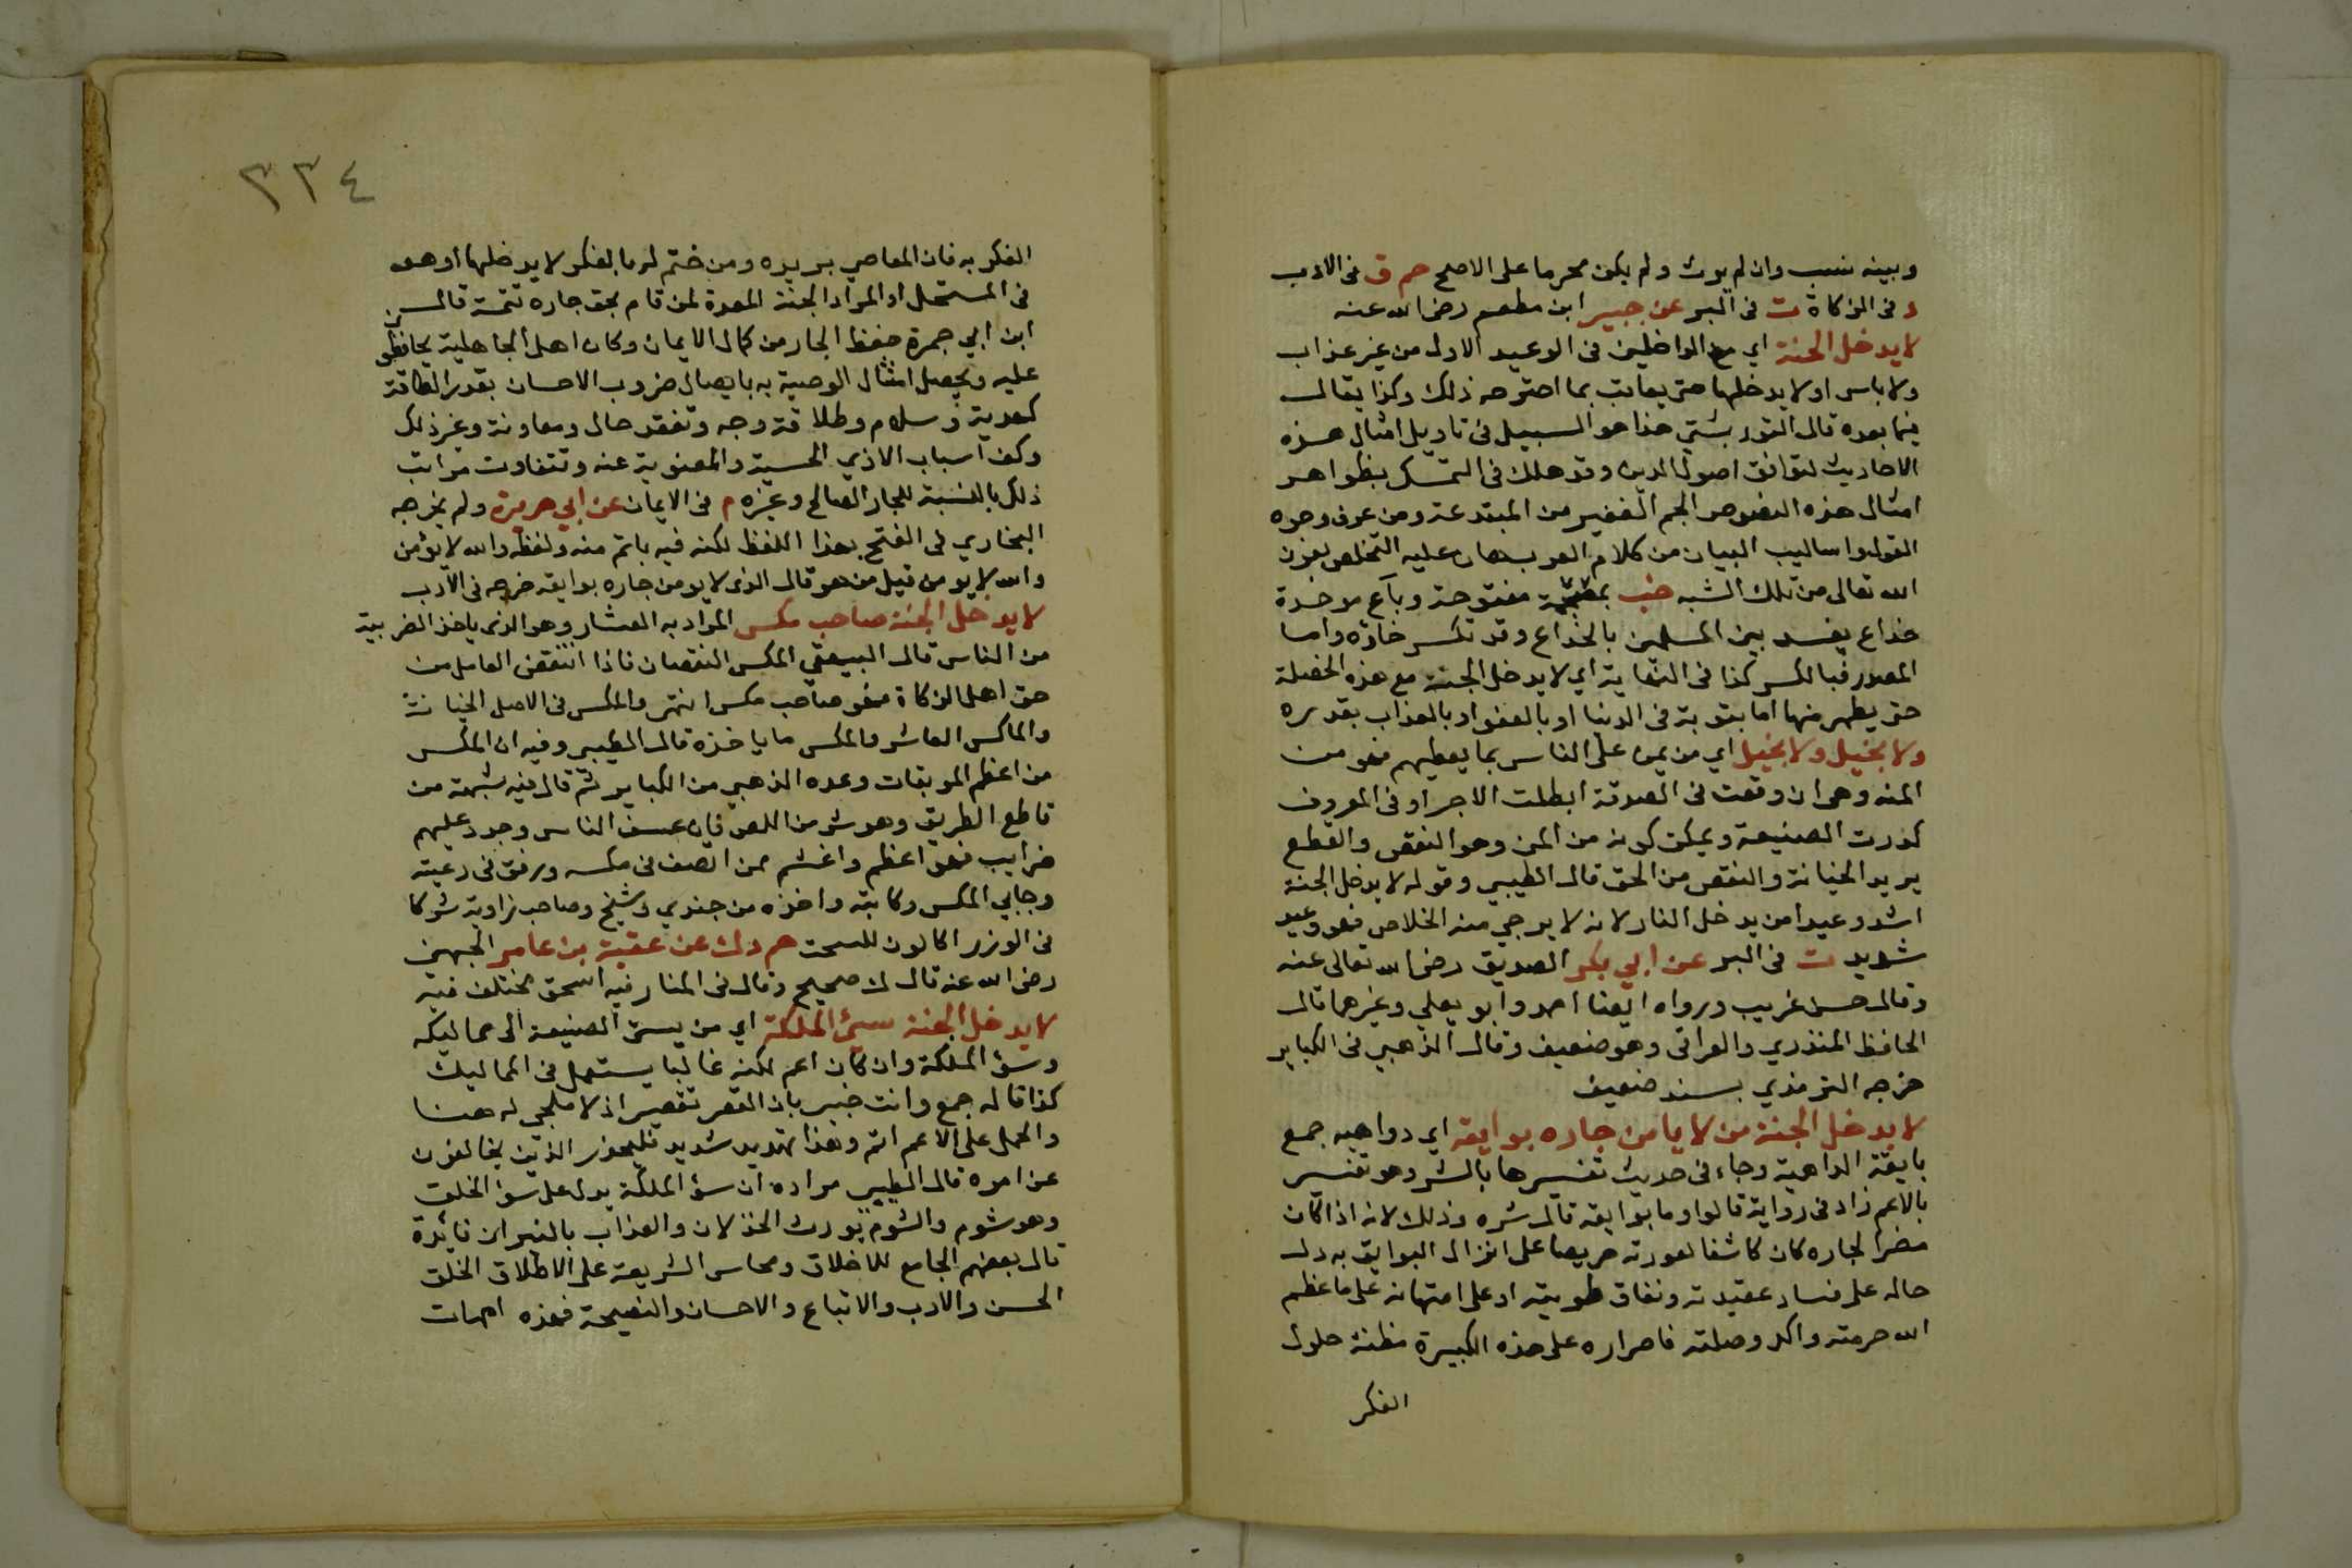 وبينه نسب وان لم يورث ولم يكن محرما على الاصح حم ق فى الادب
د فى الزكاة ت فى البر عن جبير ابن مطعم رضى الله عنه
لا يدخل الجنة اي مع الداخلين فى الوعيد الاول من غير عذاب
ولا باس او لا يدخلها حتى يعاقب بما اجترحه ذلك وكذا يقال
فيما بعده قال التوربشتي هذا هو السبيل فى تاويل امثال هذه
الاحاديث لتوافق اصول الدين وقد هلك فى التمسك بظواهر
امثال هذه النصوص الجم الغفير من المبتدعة ومن عرف وجوه
القول واساليب البيان من كلام العرب هان عليه التخلص بعون
الله تعالى من تلك الشبه خب بمعجمة مفتوحة وبآء موحدة
خداع يفسد بين المسلمين بالخداع وقد تكسر خاؤه واما
المصدر فبالكسر كذا فى النهاية اي لا يدخل الجنة مع هذه الخصلة
حتى يطهر منها اما بتوبة فى الدنيا او بالعفو او بالعذاب بقدره
ولا بخيل ولا بخيل اي من يمن على الناس بما يعطيهم فهو من
المنه وهى ان وقعت فى الصدقة ابطلت الاجر او فى المعروف
كدرت الصنيعة ويمكن كونه من المن وهو النقص والقطع
يريد الخيانة والنقص من الحق قال الطيبي وقوله لا يدخل الجنة
اشد وعيدا من يدخل النار لانه لا يرجي منه الخلاص فهو وعيد
شديد ت فى البر عن ابي بكر الصديق رضى الله تعالى عنه
وقال حسن غريب ورواه ايضا احمد وابو يعلي وغيرهما قال
الحافظ المنذري والعراقى وهو ضعيف وقال الذهبي فى الكباير
خرجه الترمذي بسند ضعيف
لا يدخل الجنة من لا يامن جاره بوايقه اي دواهيه جمع
بايقة الداهية وجاء فى حديث تفسيرها بالشر وهو تفسير
بالاعم زاد فى رواية قالوا وما بوايقه قال شره وذلك لانه اذا كان
مضرا لجاره كان كاشفا لعورته حريصا على انزال البوايق به دل
حاله على فساد عقيدته ونفاق طويته او على امتهانه على ما عظم
الله حرمته واكد وصلته فاصراره على هذه الكبيرة مظنة حلول
الفكر
٣٣٤
الفكر به فان المعاصي بريده ومن ختم له بالفكر لا يدخلها او هو
فى المستحل او المراد الجنة المعدة لمن قام بحق جاره تتمة قال
ابن ابي جمرة حفظ الجار من كمال الايمان وكان اهل الجاهلية يحافظون
عليه ويحصل امتثال الوصية به بايصال ضروب الاحسان بقدر الطاقة
كهدية وسلام وطلاقة وجه وتفقد حال ومعاونة وغير ذلك
وكف اسباب الاذي الحسية والمعنوية عنه وتتفاوت مراتب
ذلك بالنسبة للجار الصالح وغيره م فى الايمان عن ابي هريرة ولم يخرجه
البخاري في الفتح بهذا اللفظ لكنه فيه باتم منه ولفظه والله لا يؤمن
والله لا يومن قيل من هو قال الذى لا يومن جاره بوايقه خرجه فى الادب
لا يدخل الجنة صاحب مكس المراد به العشار وهو الذى ياخذ الضريبة
من الناس قال البيهقي المكس النقصان فاذا انتقص العامل من
حق اهل الزكاة فهو صاحب مكس انتهى والمكس فى الاصل الخيانة
والماكس العاشر والمكس ما ياخذه قال الطيبى وفيه ان المكس
من اعظم الموبقات وعده الذهبي من الكباير ثم قال فيه شبهة من
قاطع الطريق وهو شر من اللص فان عسف الناس وجدد عليهم
ضرايب فهو اعظم واغشم ممن انصف فى مكسه ورفق فى رعيته
وجابي المكس وكاتبه واخذه من جندي وشيخ وصاحب زاوية شركا
فى الوزر اكالون للسحت حم د ك عن عقبة بن عامر الجهنى
رضى الله عنه قال ك صحيح وقال فى المنار فيه اسحق مختلف فيه
لا يدخل الجنة سيئ الملكة اي من يسئ الصنيعة الى مماليكه
وسؤ الملكة وان كان اعم لكنه غالبا يستعمل فى المماليك
كذا قاله جمع وانت خبير بان القصر تقصير اذ لا ملجي له هنا
والحمل على الاعم اتم وهذا تهديد شديد فليحذر الذين يخالفون
عن امره قال الطيبى مراده ان سؤ الملكة يدل على سؤ الخلق
وهو شوم والشوم يورث الخذلان والعذاب بالنيران فائدة
قال بعضهم الجامع للاخلاق ومحاسن الشريعة على الاطلاق الخلق
الحسن والادب والاتباع والاحسان والنصيحة فهذه امهات